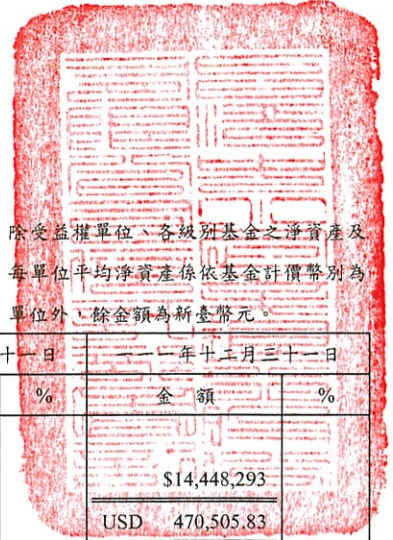 除受益權單位、各級別基金之淨資產及
每單位平均淨資產係依基金計價幣別為
單位外，餘金額為新臺幣元。
十一日 一一一年十二月三十一日
% 金額 %
$14,448,293
USD 470,505.83